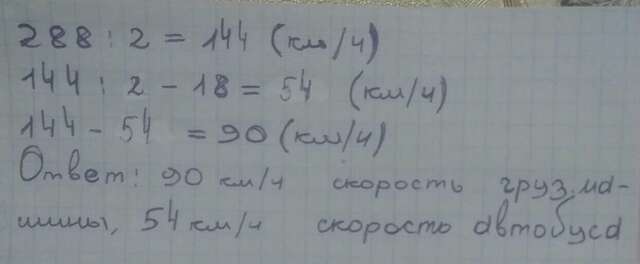 288 : 2 = 144 (км/ч)
144 : 2 - 18 = 54 (км/ч)
144 - 54 = 90 (км/ч)
Ответ: 90 км/ч скорость груз.ма-
шины, 54 км/ч скорость автобуса